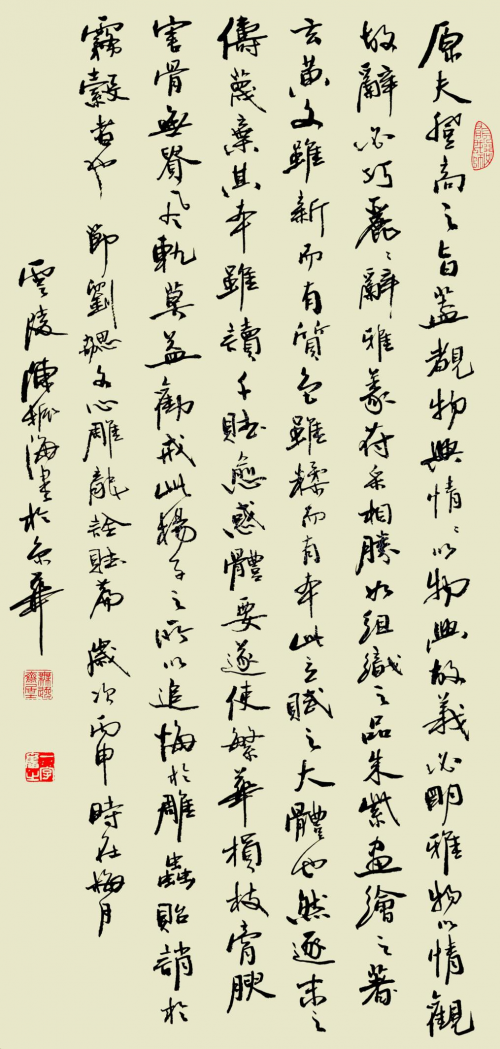 原夫登高之旨蓋覩物興情〻以物興故義必明雅物以情觀
故辭必巧麗〻辭雅義符采相勝如組織之品朱紫畫繪之著
玄黃文雖新而有質色雖糅而有本此立賦之大體也然逐末之
儔蔑棄其本雖讀千賦愈惑體要遂使繁華損枝膏腴
害骨無貴風軌莫益勸戒此揚子之所以追悔於雕蟲貽誚於
霧縠者也 節劉勰文心雕龍詮賦篇 歲次丙申 時在梅月
雲陵陳海書於京華